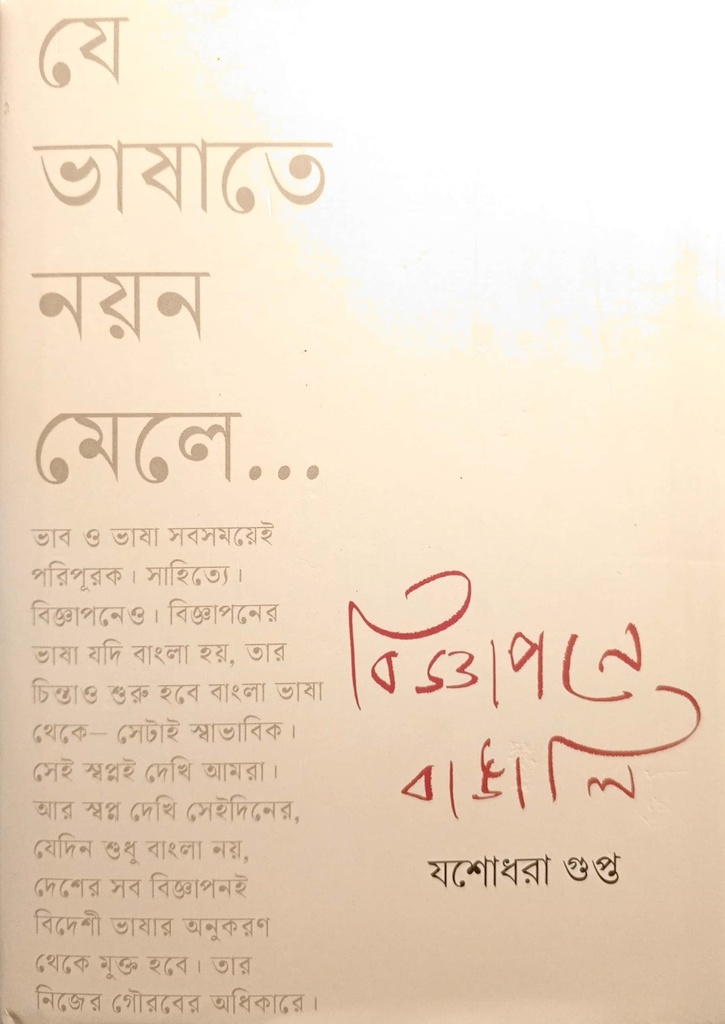 যে
ভাষাতে
নয়ন
মেলে...
ভাব ও ভাষা সবসময়েই
পরিপূরক। সাহিত্যে।
বিজ্ঞাপনেও। বিজ্ঞাপনের
ভাষা যদি বাংলা হয়, তার
চিন্তাও শুরু হবে বাংলা ভাষা
থেকে— সেটাই স্বাভাবিক।
সেই স্বপ্নই দেখি আমরা।
আর স্বপ্ন দেখি সেইদিনের,
যেদিন শুধু বাংলা নয়,
দেশের সব বিজ্ঞাপনই
বিদেশী ভাষার অনুকরণ
থেকে মুক্ত হবে। তার
নিজের গৌরবের অধিকারে।
বিজ্ঞাপনে
বাঙালি
যশোধরা গুপ্ত